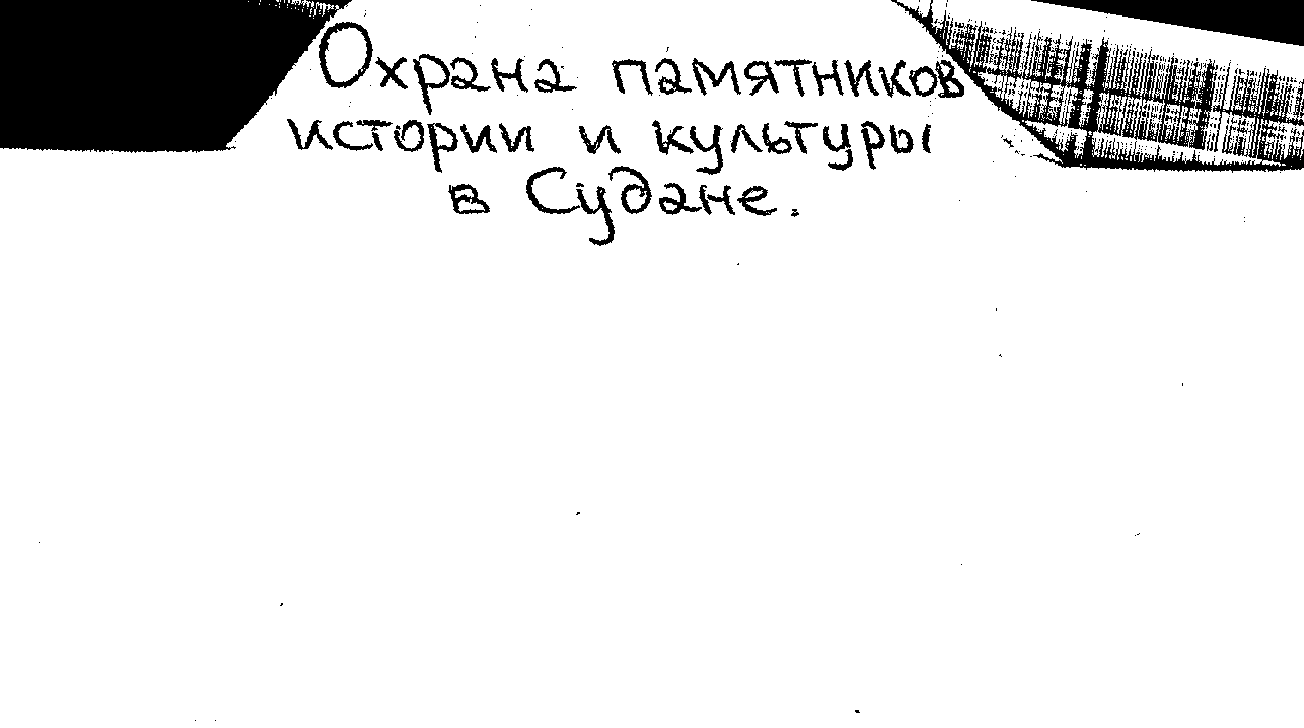 Охрана памятников
истории и культуры
в Судане.